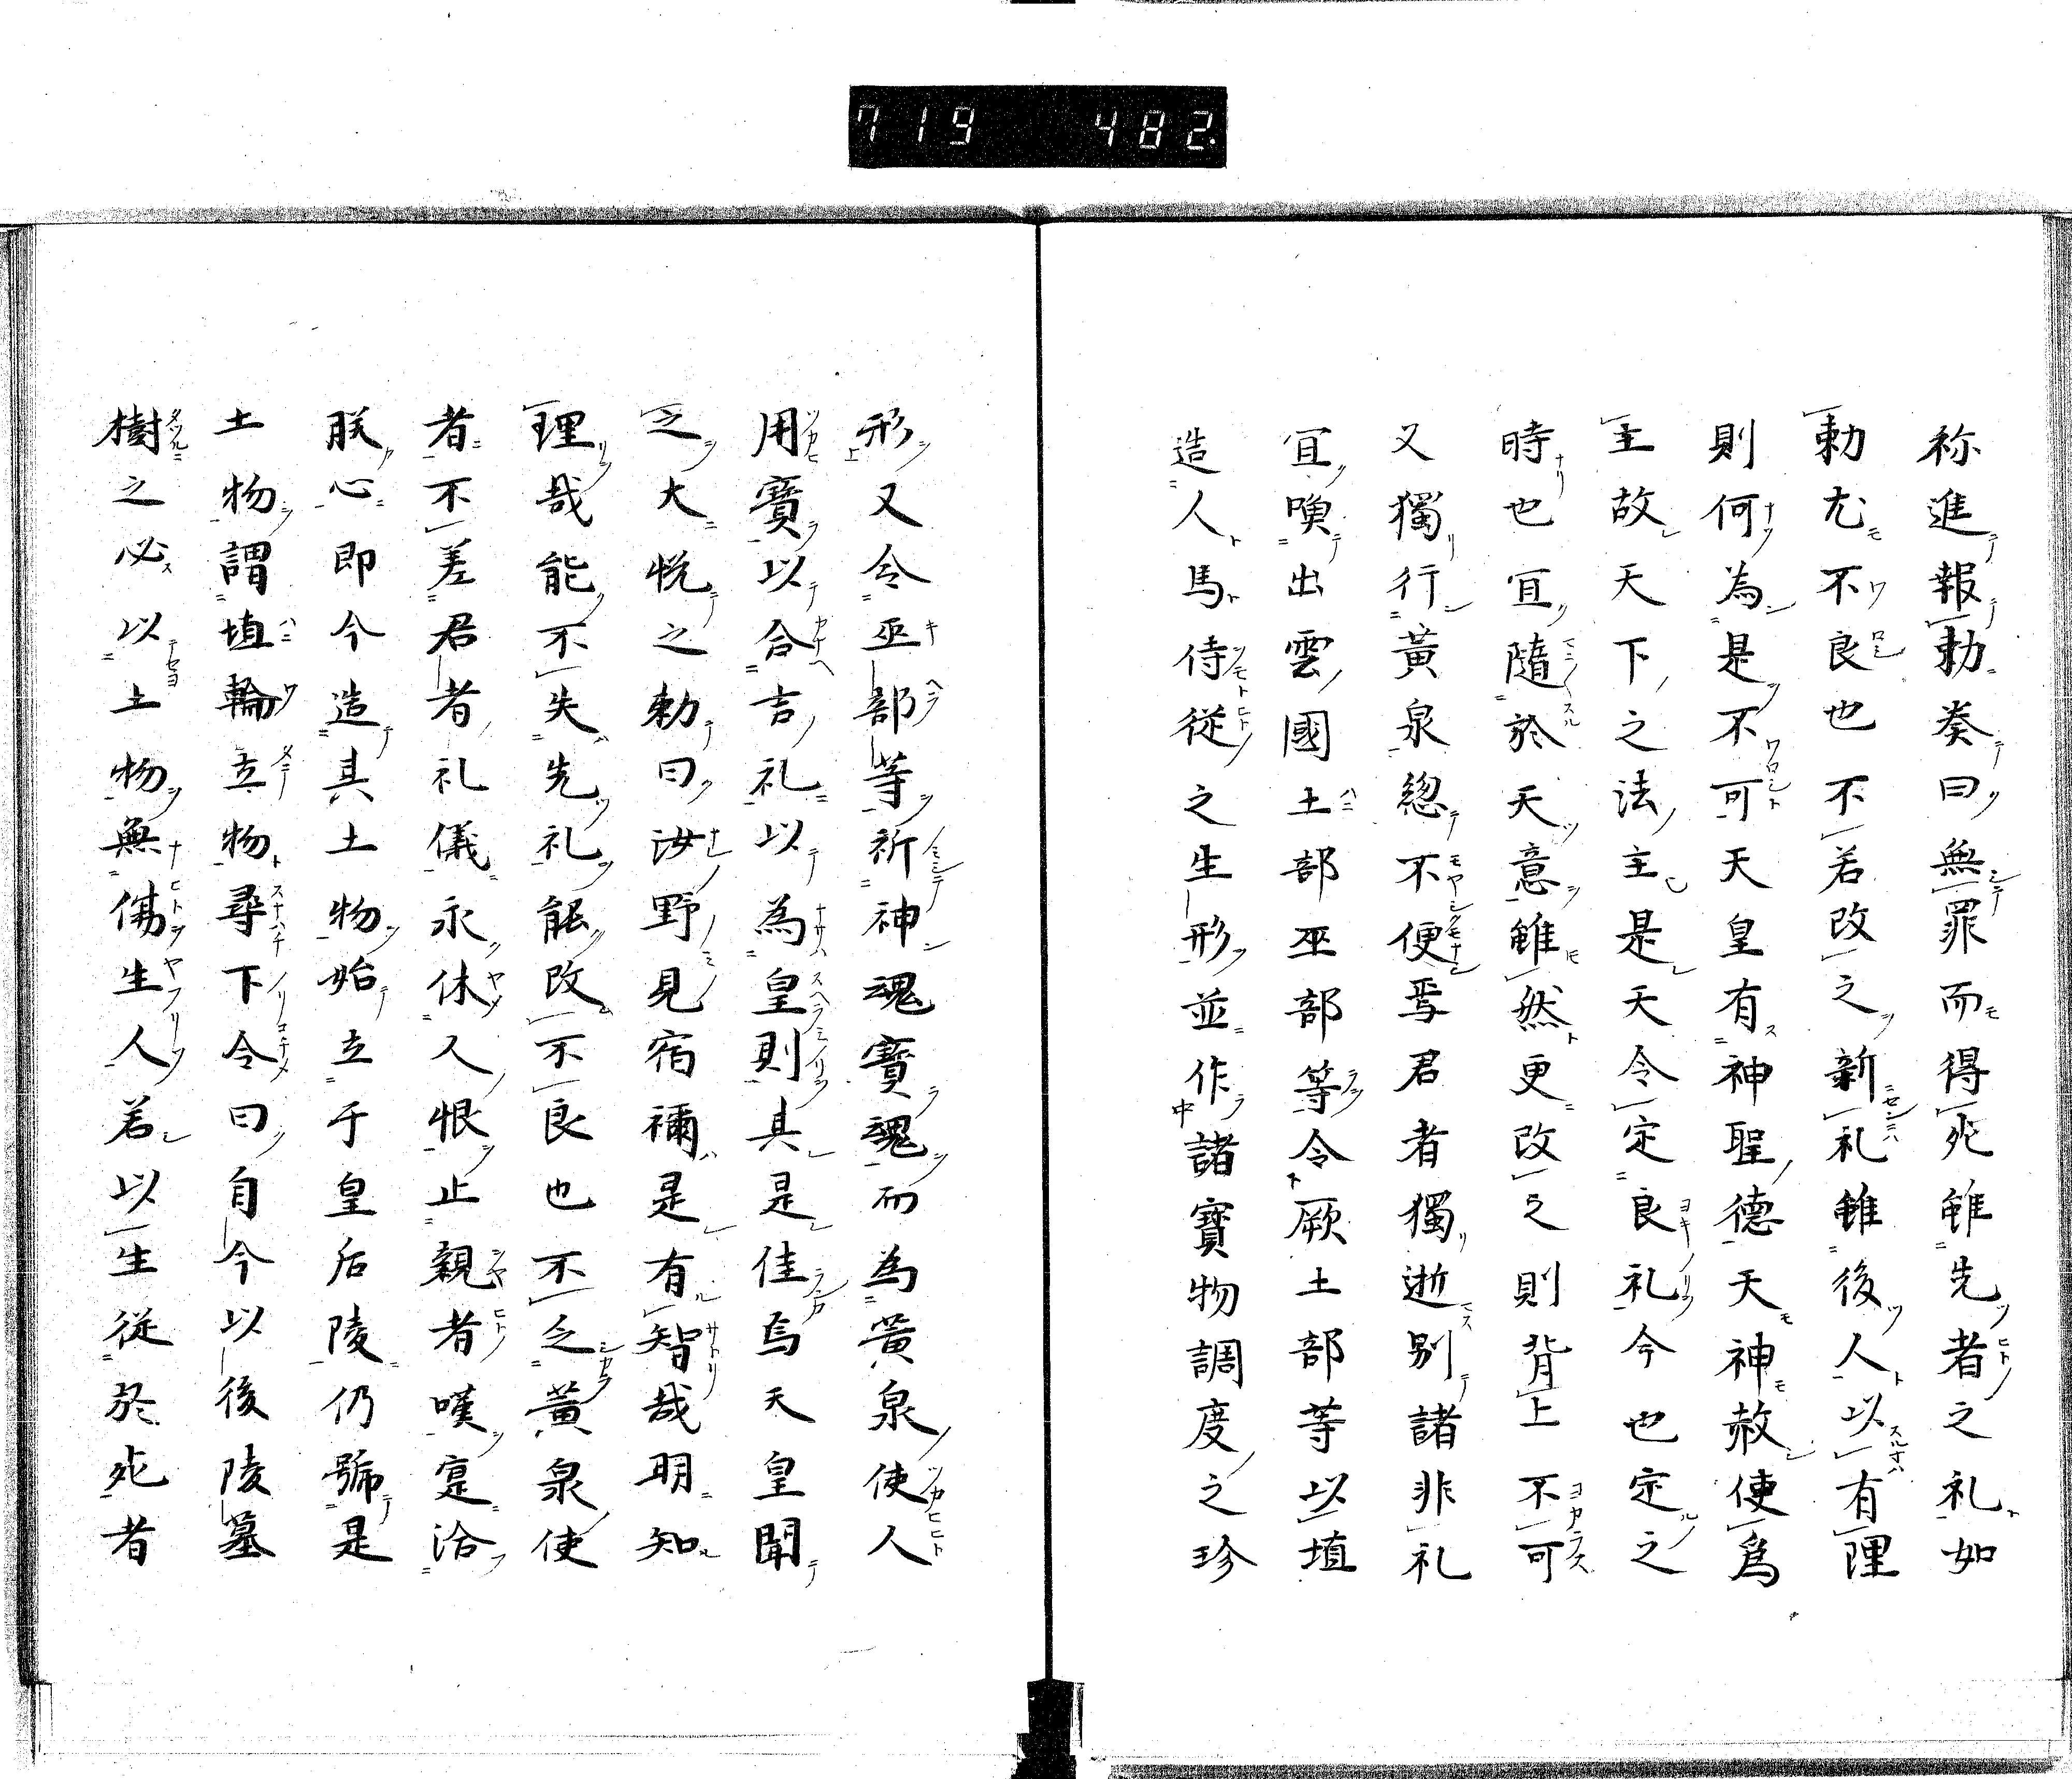 719 482
祢進報勅奏曰無罪而得死雖先者之礼如
勅尤不良也不若改之新礼雖後人以有理
則何為是不可天皇有神聖德天神赦使為
主故天下之法主是天令定良礼今也定之
時也宜隨於天意雖然更改之則背上不可
又獨行黃泉緫不便焉君者獨逝別諸非礼
宜喚出雲國土部巫部等令厥土部等以埴
造人馬侍從之生形並作諸寶物調度之珍
形又令巫部等祈神魂寶魂而為黃泉使人
用寶以合吉礼以為皇則其是佳焉天皇聞
之大悦之勅曰汝野見宿禰是有智哉明知
理哉能不失先礼能改不良也不令黃泉使
者不差君者礼儀永休人恨止親者嘆寔洽
朕心即今造其土物始立于皇后陵仍號是
土物謂埴輪立物尋下令曰自今以後陵墓
樹之必以土物無傷生人若以生從於死者